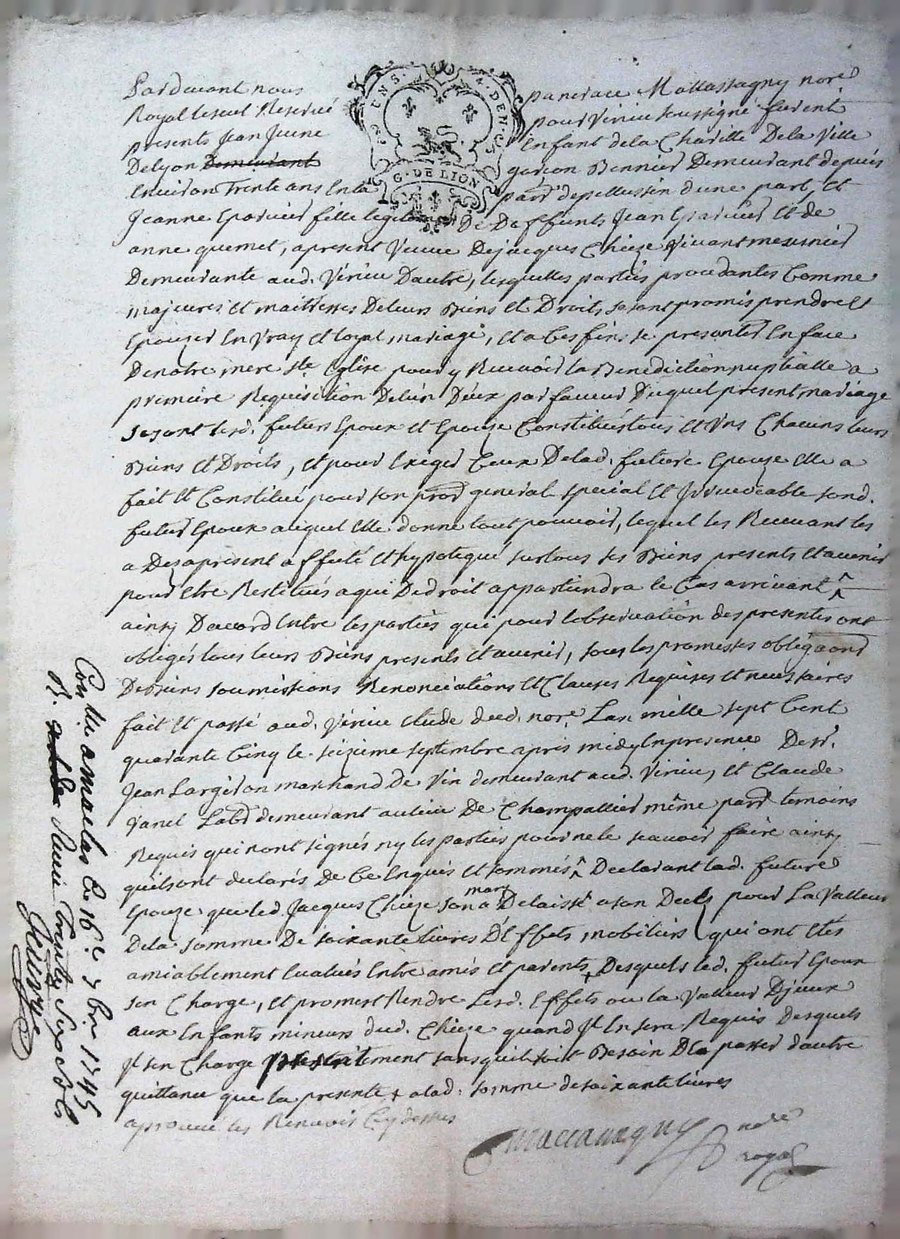 Pardevant nous pancrace Mattassagny nore
Royal Resué Reservé pour Virieu soussigné furent
presents Jean Jeune Enfant de la Charitté De la Ville
De Lyon Demeurant garçon Demeurant depuis
Environ Trente ans En la parr depellussin d'une part, Et
GNS. 4. DEN.
G. DE LION
Jeanne Eparvier fille legit De Deffunts Jean Eparvier Et de
anne quemet, apresent Veuve De jacques Chieze Vivant meusnier
Demeurante aud. Virieu D'autre, lesquelles parties procedantes Comme
majeures et maitresses De leurs Biens Et Droits, se sont promis prendre Et
Epouzer En Vray Et loyal mariage, Et a Ces fins se presenter En face
De notre mere Ste Eglise pour y Recevoir la Benediction nuptialle a
premiere Requisition De l'un D'eux par faveur Duquel present mariage
Se sont lesd. futurs Epoux et Epouze Constitués tous Et Uns Chacuns leurs
Biens Et Droits, Et pour Exiger Ceux De lad. future Epouze Elle a
fait Et Constitué pour son procr general special Et Irrevocable sond.
futur Epoux auquel Elle donne tout pouvoir, lequel les Recevant les
a Des apresent affecté Et hypotequé sur tous ses Biens presents Et avenir
pour Etre Restitués a qui De droit appartiendra le Cas arrivant
ainsy D'accord Entre les parties qui pour l'observation des presentes ont
obligés tous leurs Biens presents Et avenir, sous les promesses obligaons
De Biens soumissions Renonciations Et Clauses Requises et necessaires
fait Et passé aud. Virieu Etude dud. nore. L'an mille sept Cent
quarante Cinq le seizieme septembre apres midy En presence De sr.
Jean Largeron marchand De Vin demeurant aud. Virieu, Et Claude
Janel Labr demeurant au lieu De Champallier même parr temoins
Requis qui n'ont signés ny les parties pour ne le scavoir faire ainsy
qu'ils ont declarés De Ce Enquis Et sommés Declarant lad. future
Epouze que led. Jacques Chieze son mary a Delaissé a son Decès pour La Valleur
De la somme De soixante livres D'Effets mobiliers qui ont Etés
amiablement Evalués Entre amis et parents + Desquels led. futur Epoux
se Charge, Et promet Rendre lesd. Effets ou la Valleur D'jceux
aux Enfants mineurs dud. Chieze quand Jl En sera Requis Desquels
Jl s'en Charge presentement sans qu'il soit Besoin D'En passer d'autre
quittance que la presente + a lad. somme de soixante livres
aprouvé les Renvois Cy dessus
Mattassagny nore
royal
Conlle a maclas Le 16e 7bre 1745
R. Trente Six sols
Jeurye